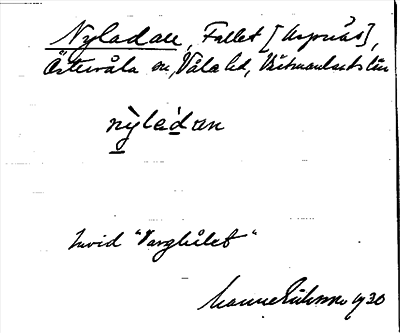 Nyladan, Fallet [Aspnäs],
Östervåla sn, Våla hd, Västmanlands län
nỳladan
Invid "Varghålet"
Manne Eriksson 1930